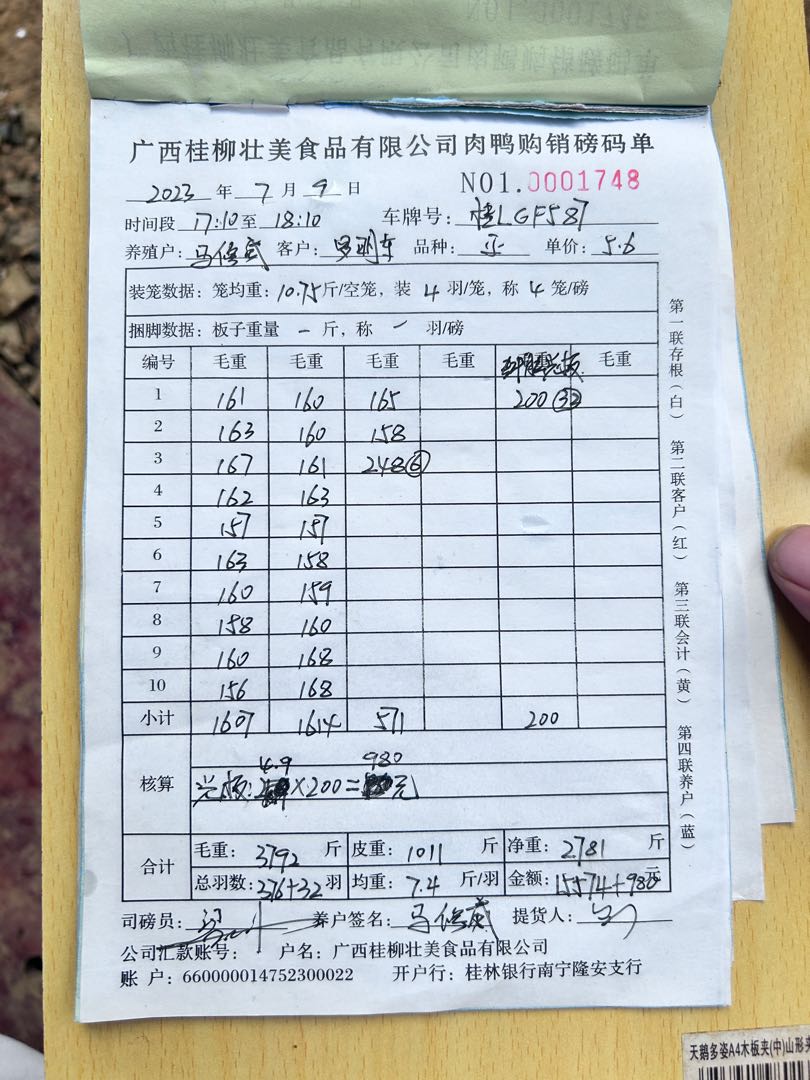 广西桂柳壮美食品有限公司肉鸭购销磅码单
2023 年 7 月 9 日 NO1.0001748
时间段 17:10 至 18:10 车牌号: 桂LGF587
养殖户: 马俊威 客户: 罗明东 品种: 单价: 5.6
装笼数据: 笼均重: 10.75 斤/空笼, 装 4 羽/笼, 称 4 笼/磅
捆脚数据: 板子重量 一 斤, 称 一 羽/磅
编号 毛重 毛重 毛重 毛重 毛重
1 161 160 165 200 (32)
2 163 160 158
3 167 161 248 (6)
4 162 163
5 157 157
6 163 158
7 160 159
8 158 160
9 160 168
10 156 168
小计 1607 1614 571 200
核算
4.9 980
×200=元
合计
毛重: 3792 斤 皮重: 1011 斤 净重: 2781 斤
总羽数: 376+32 羽 均重: 7.4 斤/羽 金额: 15574+980 元
司磅员: 养户签名: 马俊威 提货人:
公司汇款账号: 户名: 广西桂柳壮美食品有限公司
账 户: 660000014752300022 开户行: 桂林银行南宁隆安支行
第一联存根(白)
第二联客户(红)
第三联会计(黄)
第四联养户(蓝)
天鹅多姿A4木板夹(中)山形夹